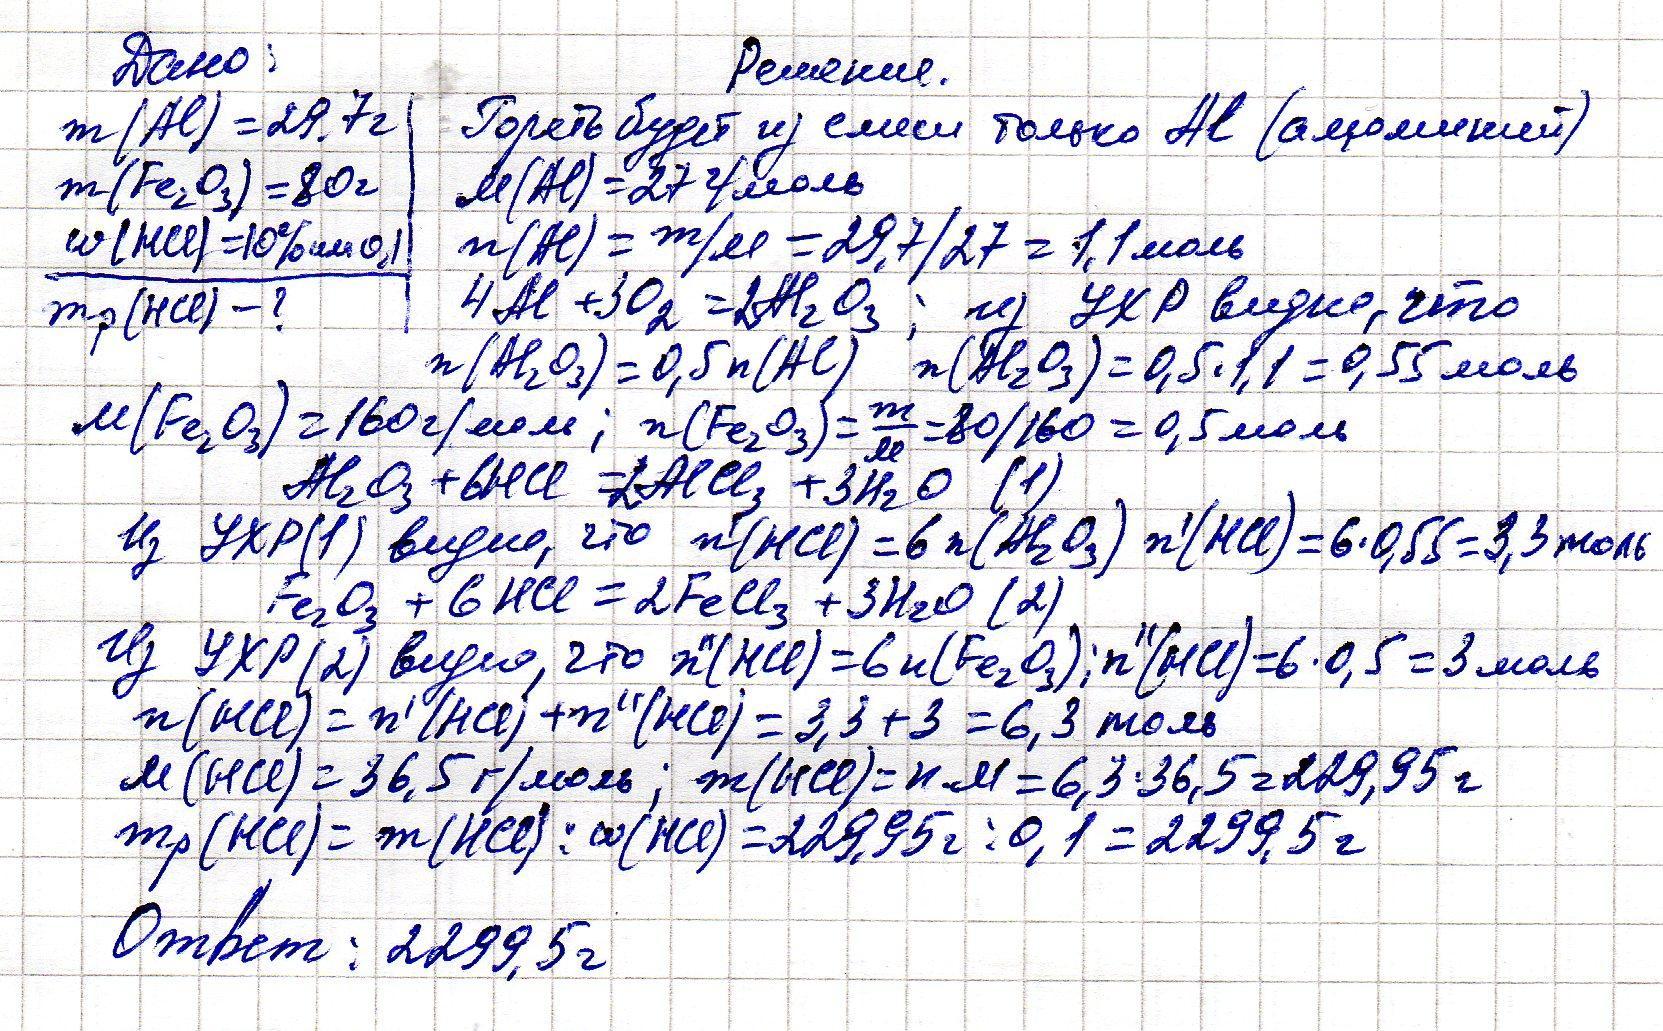 Дано:
Решение.
m(Al) = 29,7г
Гореть будет из смеси только Al (алюминий)
m(Fe₂O₃) = 80г
M(Al) = 27 г/моль
w(HCl) = 10% или 0,1
n(Al) = m/M = 29,7/27 = 1,1 моль
mр(HCl) - ?
4Al + 3O₂ = 2Al₂O₃; из УХР видно, что
n(Al₂O₃) = 0,5n(Al) n(Al₂O₃) = 0,5·1,1 = 0,55 моль
M(Fe₂O₃) = 160 г/моль; n(Fe₂O₃) = m/M = 80/160 = 0,5 моль
Al₂O₃ + 6HCl = 2AlCl₃ + 3H₂O (1)
Из УХР(1) видно, что n'(HCl) = 6n(Al₂O₃) n'(HCl) = 6·0,55 = 3,3 моль
Fe₂O₃ + 6HCl = 2FeCl₃ + 3H₂O (2)
Из УХР(2) видно, что n"(HCl) = 6n(Fe₂O₃); n"(HCl) = 6·0,5 = 3 моль
n(HCl) = n'(HCl) + n"(HCl) = 3,3 + 3 = 6,3 моль
M(HCl) = 36,5 г/моль; m(HCl) = n·M = 6,3·36,5 = 229,95 г
mр(HCl) = m(HCl) : w(HCl) = 229,95г : 0,1 = 2299,5 г
Ответ: 2299,5г